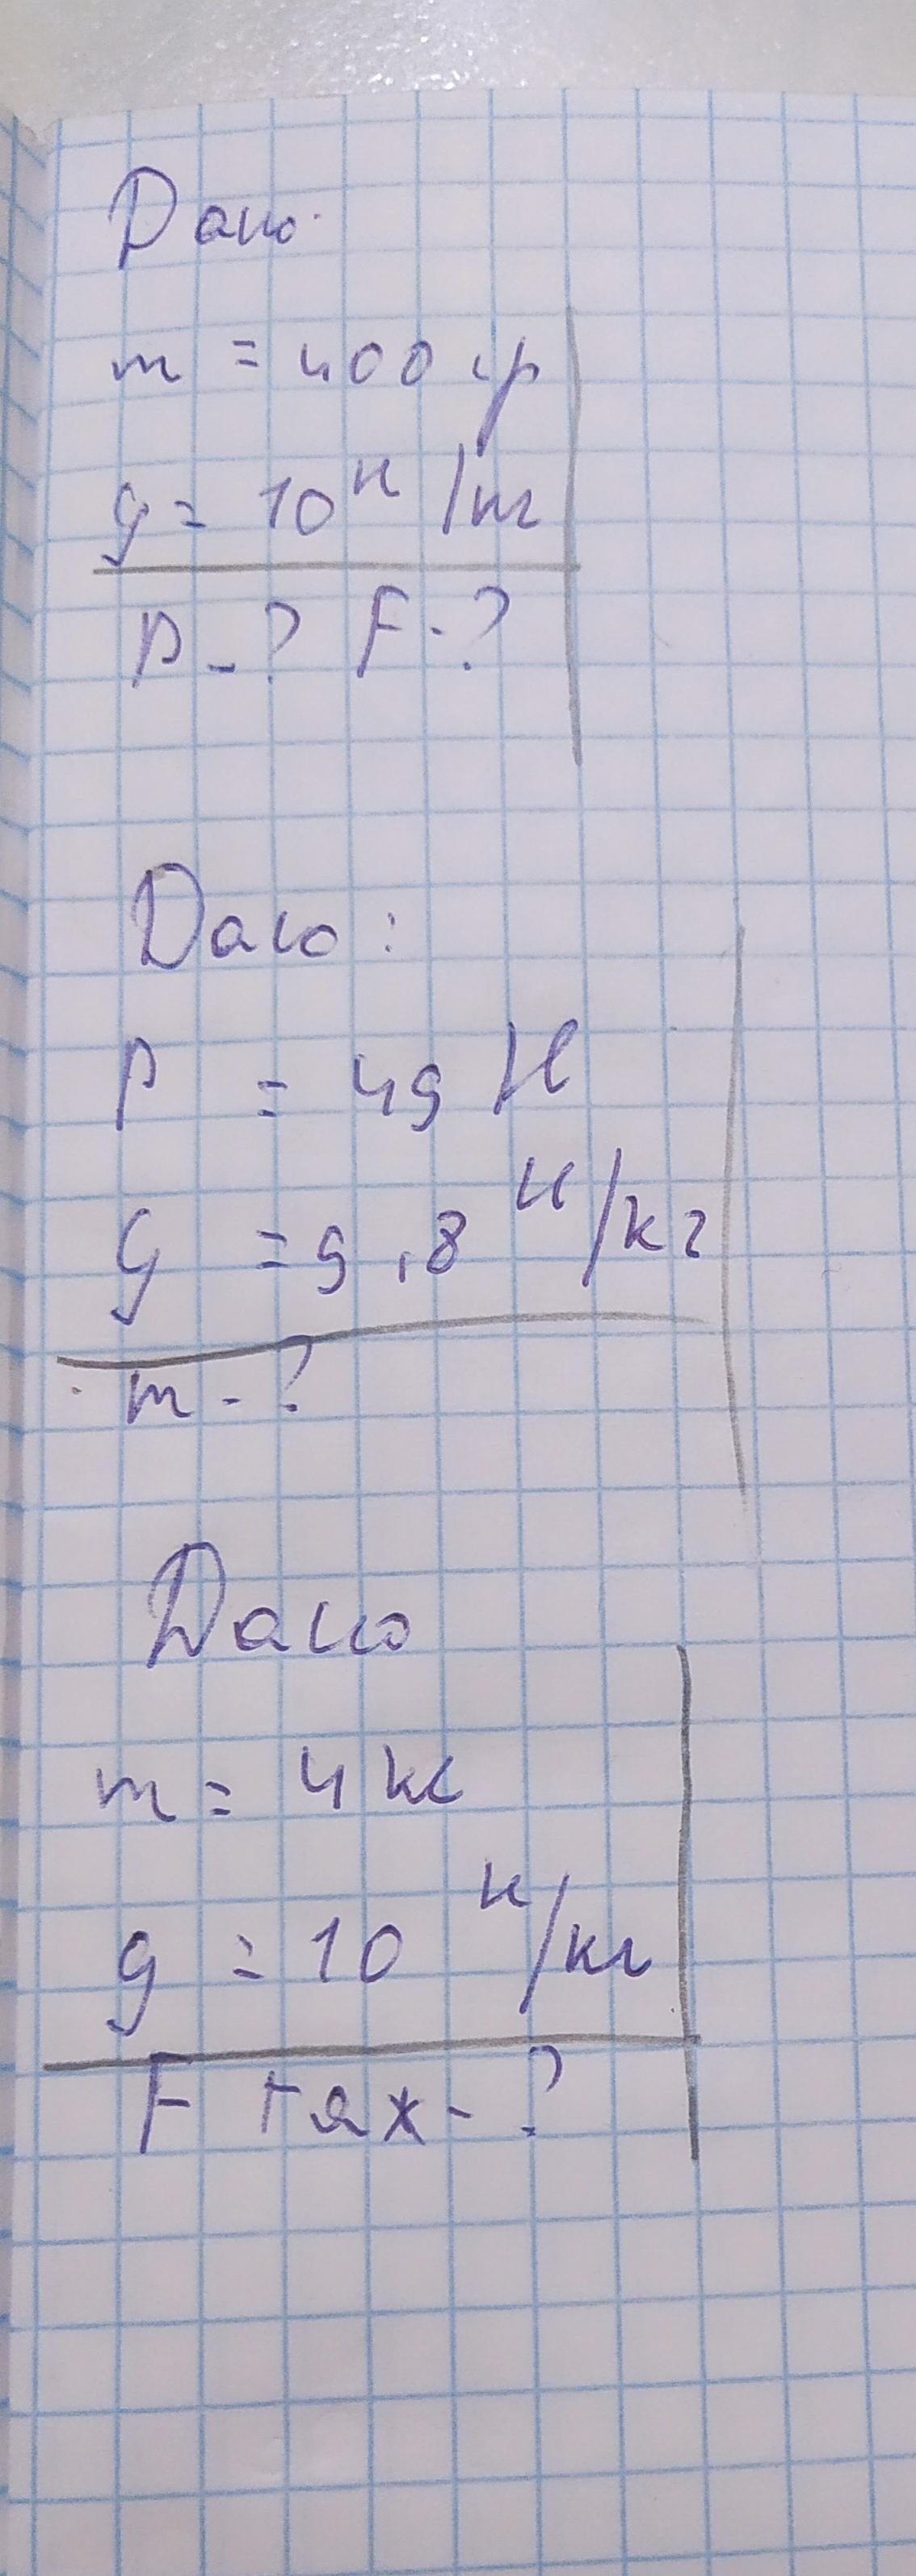 Дано:
m = 400 гр
g = 10 Н/кг
P - ? F - ?
Дано:
P = 49 Н
g = 9,8 Н/кг
m - ?
Дано
m = 4 кг
g = 10 Н/кг
F тяж - ?